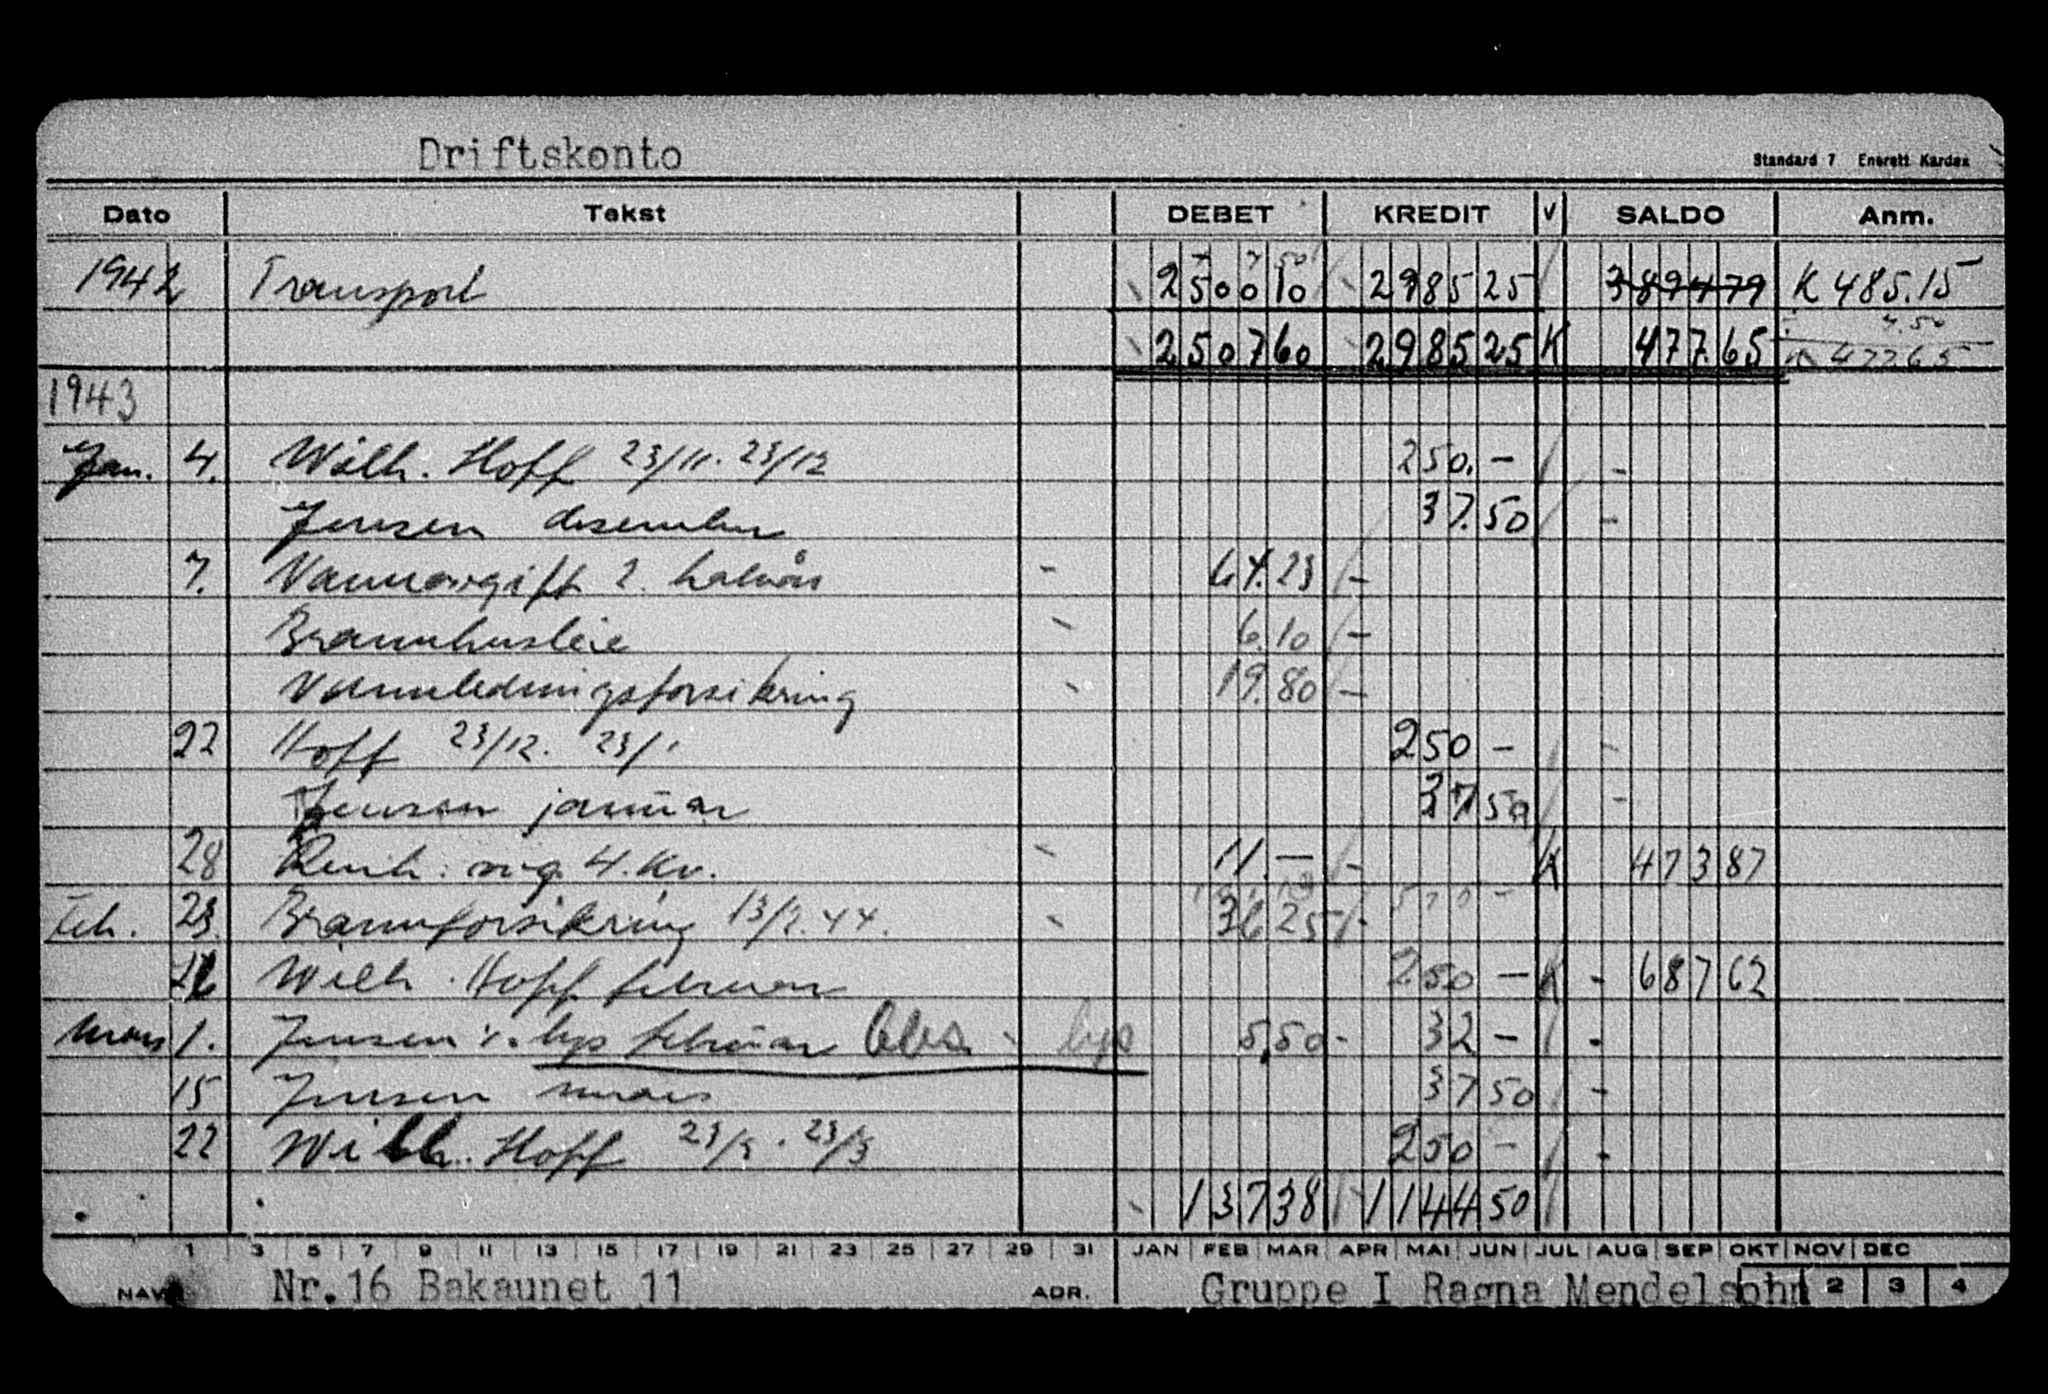 Driftskonto
Standard 7 Enerett Kardex
Dato Tekst DEBET KREDIT V SALDO Anm.
1942 Transport 2500 10 2985 25 3894 79 K 485.15
7.50
2507 60 2985 25 K 477.65 K 477.65
1943
Jan. 4. Wilh. Hoff 23/11. 23/12 250.-
Jensen desember 37.50
7. Vannavgift 2. halvår 64.23
Brannhusleie 6.10
Vannledningsforsikring 19.80
22 Hoff 23/12. 23/1 250 -
Jensen januar 37 50
28 Renh. 4. Kv. 11.- K 473 87
Feb. 23. Brannforsikring 13/2.44. 36 25
26 Wilh. Hoff februar 250 - K 687 62
Mars 1. Jensen %. lys februar Obs. lys 5,50 32 -
15 Jensen mars 37 50
22 Wilh. Hoff 23/2. 23/3 250 -
137 38 1144 50
1 3 5 7 9 11 13 15 17 19 21 23 25 27 29 31 JAN FEB MAR APR MAI JUN JUL AUG SEP OKT NOV DEC
NAVN Nr.16 Bakaunet 11 ADR. Gruppe I Ragna Mendelsohn 2 3 4